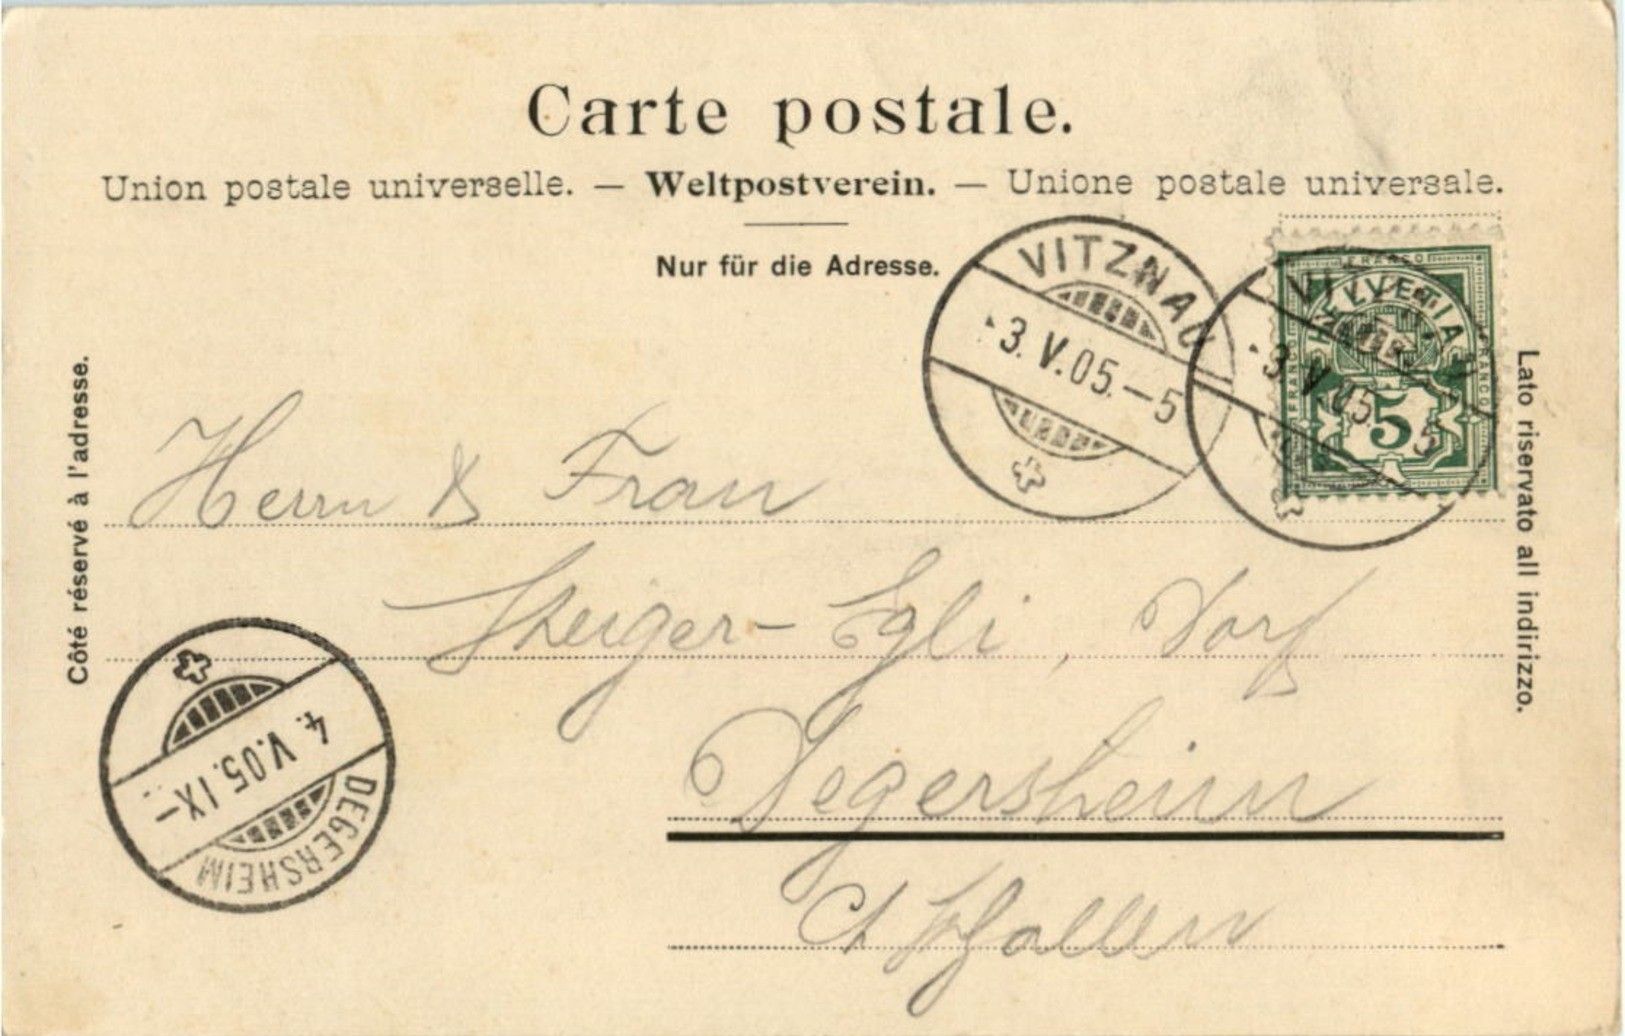 Carte postale.
Union postale universelle. — Weltpostverein. — Unione postale universale.
Nur für die Adresse.
VITZNAU
3. V. 05. – 5
VITZNAU
3. V. 05. 5
FRANCO
HELVETIA
FRANCO
FRANCO
5
Côté réservé à l'adresse.
Lato riservato all indirizzo.
Herrn & Frau
Steiger-Egli, Dorf
Degersheim
Ct St Gallen
4. V. 05. IX –
DEGERSHEIM